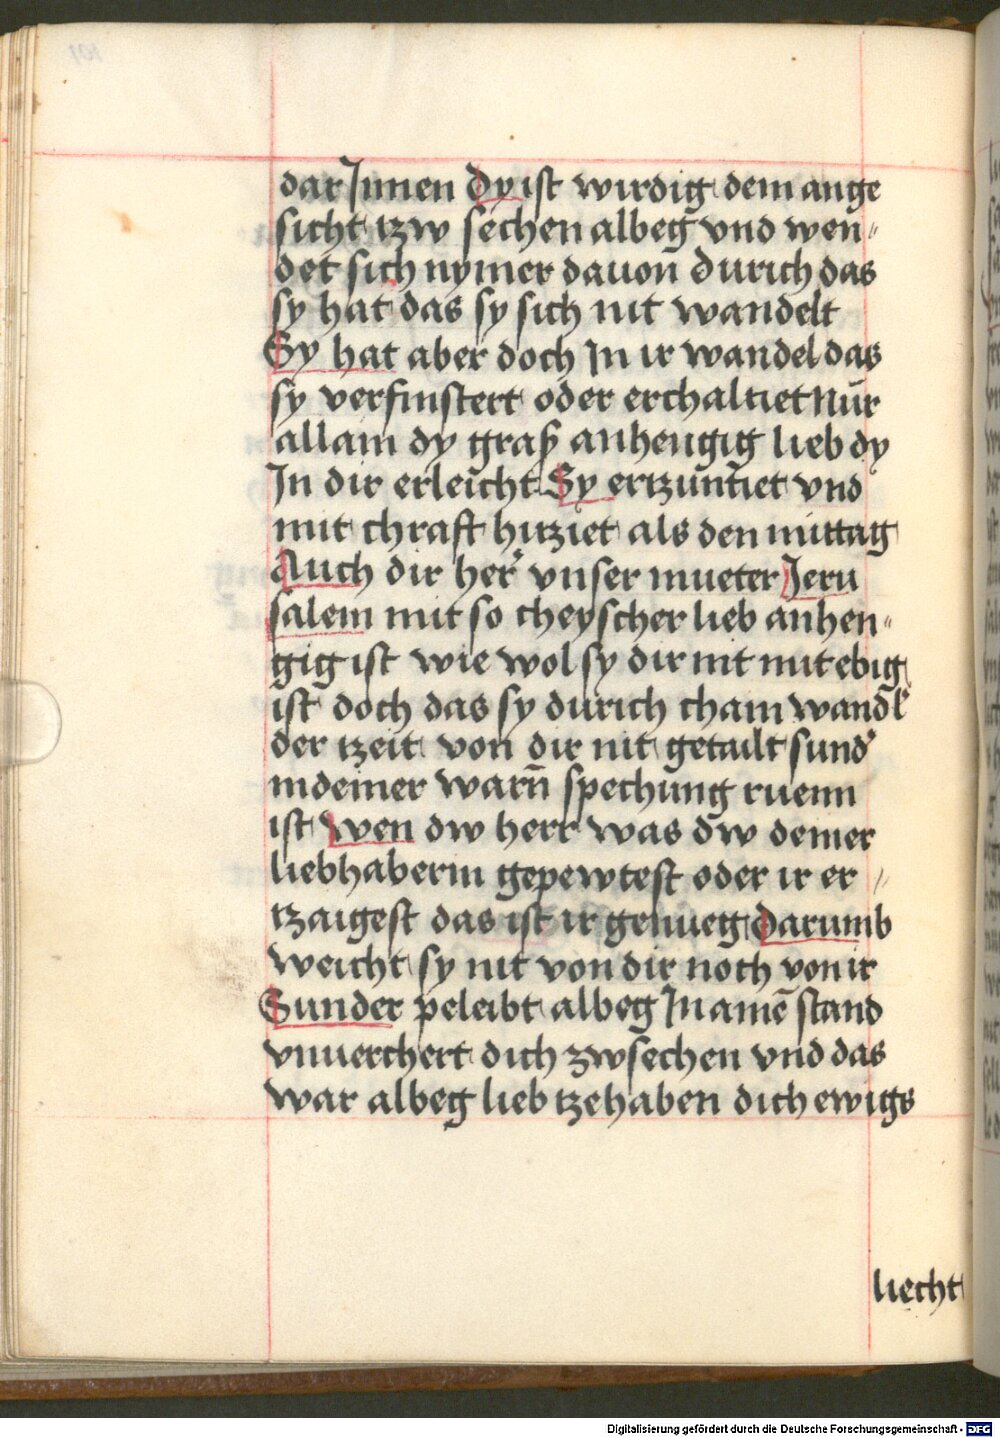 dar Innen Dy ist wirdig dem ange
sicht tzw sechen albeg vnd wen„
det sich nymer dauon durich das
sy hat das sy sich nit wandelt
Sy hat aber doch In ir wandel das
sy verfinstert oder erchaltiet Nur
allain dy graß anhengig lieb dy
In dir erleicht Sy ertzuntiet vnd
mit chraft hitziet als den mittag
Auch dir her᷑ vnser mueter Jeru
salem mit so cheyscher lieb anhen„
gig ist wie wol sy dir nit mitebig
ist doch das sy durich cham wandl᷑
der tzeit von dir nit getailt sund᷑
in deiner warn̄ spechung ruenn
ist wen dw herr was dw deiner
liebhaberin gepewtest oder ir er„
tzaigest das ist ir genueg darumb
weicht sy nit von dir noch von ir
Sunder peleibt albeg In ainē stand
vnuerchert dich zw sechen vnd das
war albeg lieb tzehaben dich ewigs
liecht
Digitalisierung gefördert durch die Deutsche Forschungsgemeinschaft - DFG